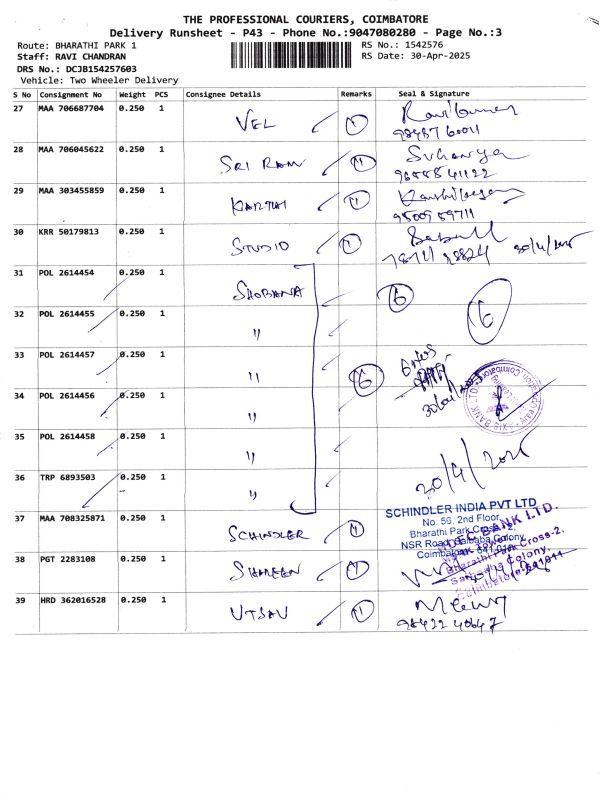 THE PROFESSIONAL COURIERS, COIMBATORE
Delivery Runsheet - P43 - Phone No.:9047080280 - Page No.:3
Route: BHARATHI PARK 1
RS No.: 1542576
Staff: RAVI CHANDRAN
RS Date: 30-Apr-2025
DRS No.: DCJB154257603
Vehicle: Two Wheeler Delivery
S No Consignment No Weight PCS Consignee Details Remarks Seal & Signature
27 MAA 706687704 0.250 1 VEL 1
28 MAA 706045622 0.250 1 SRI RAM 1
29 MAA 303455859 0.250 1 KARTHI 1
30 KRR 50179813 0.250 1 STUDIO 1 30/4/2025
31 POL 2614454 0.250 1 SHOBANA 6 6
32 POL 2614455 0.250 1 "
33 POL 2614457 0.250 1 " 6
34 POL 2614456 0.250 1 "
35 POL 2614458 0.250 1 "
36 TRP 6893503 0.250 1 " 30/4/2025
37 MAA 708325871 0.250 1 SCHINDLER 1
SCHINDLER INDIA PVT LTD
No. 56, 2nd Floor,
Bharathi Park Cross-2,
NSR Road, Saibaba Colony,
38 PGT 2283108 0.250 1 1
39 HRD 362016528 0.250 1 UTSAV 1
98422 40647